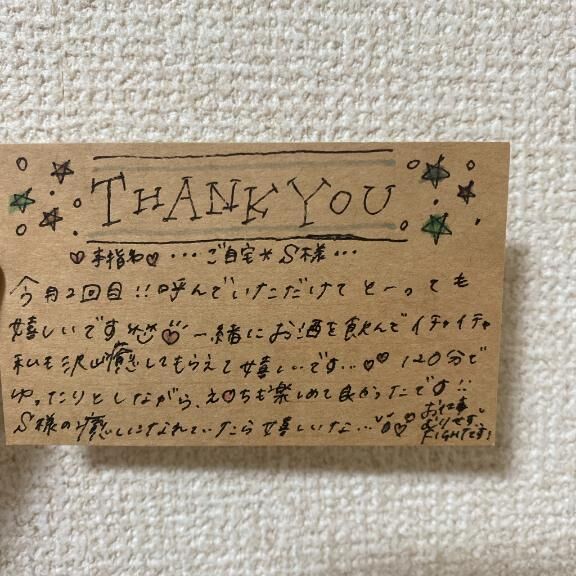 THANK YOU
♡本指名♡ ・・・ご自宅*S様・・・
今月2回目!!呼んでいただけてとーっても
嬉しいです♡一緒にお酒を飲んでイチャイチャ
私も沢山癒してもらえて嬉しいです…♡♡120分で
ゆったりとしながら、え♡ちも楽しめて良かったです!!
S様の癒しになれていたら嬉しいな…♡♡
お仕事
FIGHTです!